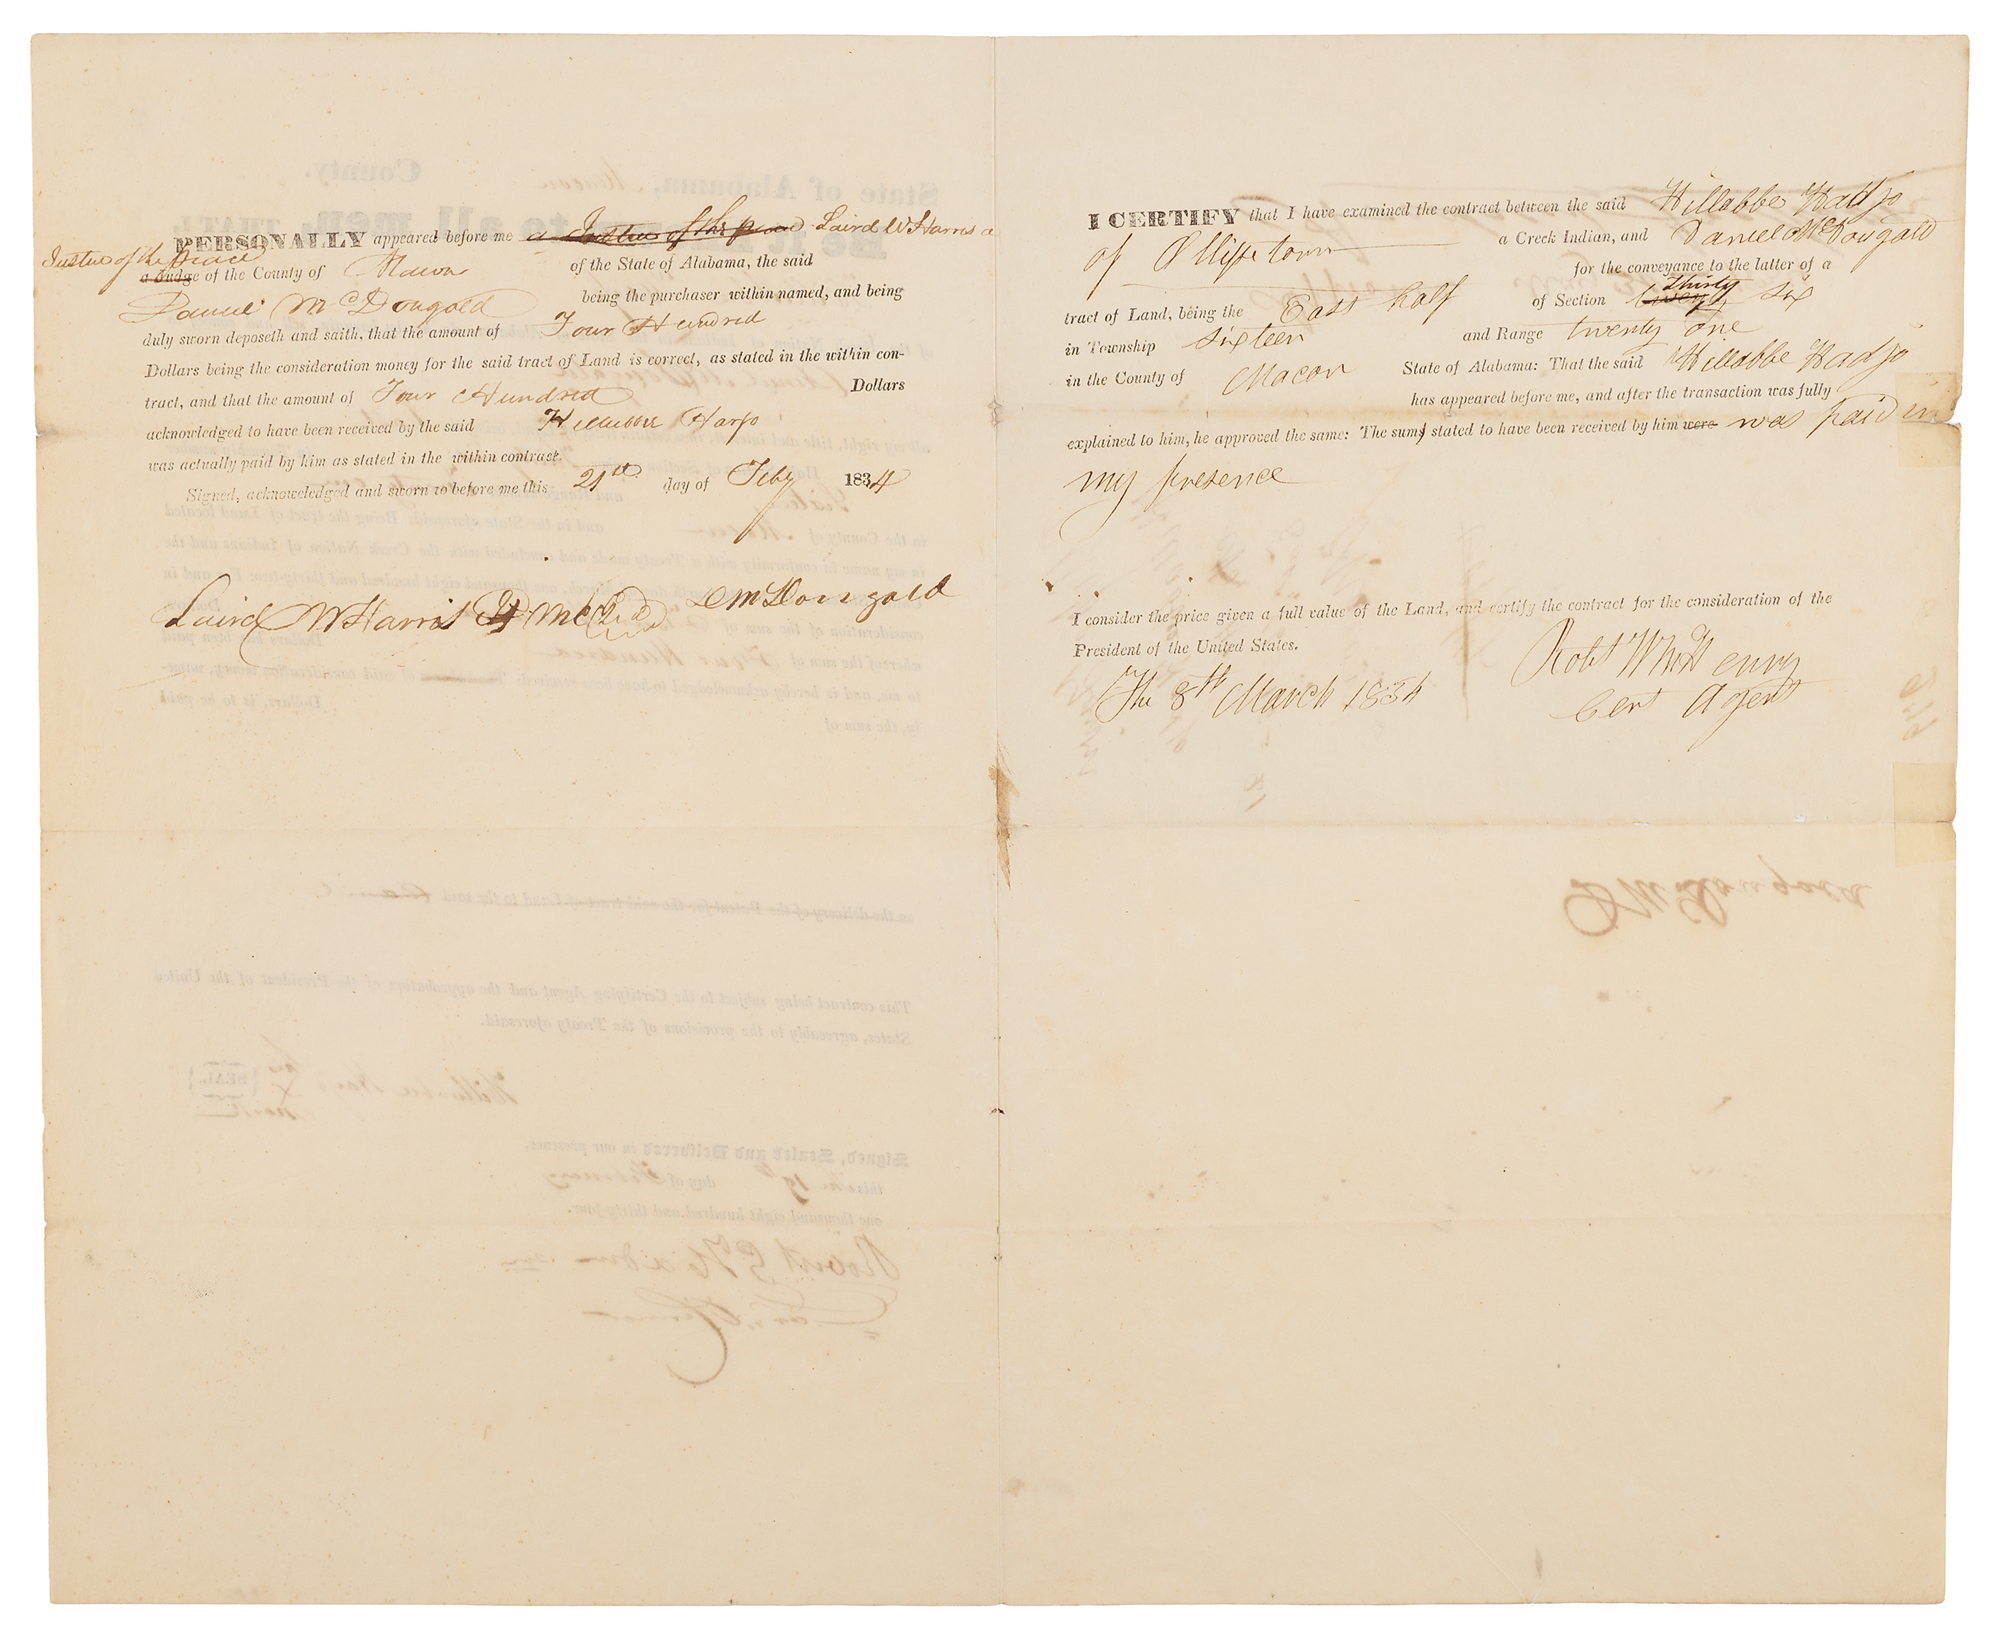 PERSONALLY appeared before me a Justice of the peace Laird W Harris a
Justice of the Peace
a Judge of the County of Macon of the State of Alabama, the said
Daniel McDougald being the purchaser within named, and being
duly sworn deposeth and saith, that the amount of Four Hundred
Dollars being the consideration money for the said tract of Land is correct, as stated in the within con-
tract, and that the amount of Four Hundred Dollars
acknowledged to have been received by the said Harjo
was actually paid by him as stated in the within contract.
Signed, acknowledged and sworn to before me this 21st day of Feby 1834
D McDougald
Laird W Harris
I CERTIFY that I have examined the contract between the said Hillabbe Hadjo
of town a Creek Indian, and Daniel McDougald
for the conveyance to the latter of a
tract of Land, being the East half of Section twenty Thirty six
in Township sixteen and Range twenty one
in the County of Macon State of Alabama: That the said Hillabbe Hadjo
has appeared before me, and after the transaction was fully
explained to him, he approved the same: The sums stated to have been received by him were was paid in
my presence
I consider the price given a full value of the Land, and certify the contract for the consideration of the
President of the United States.
The 8th March 1834
Robt W McHenry
Cert Agent